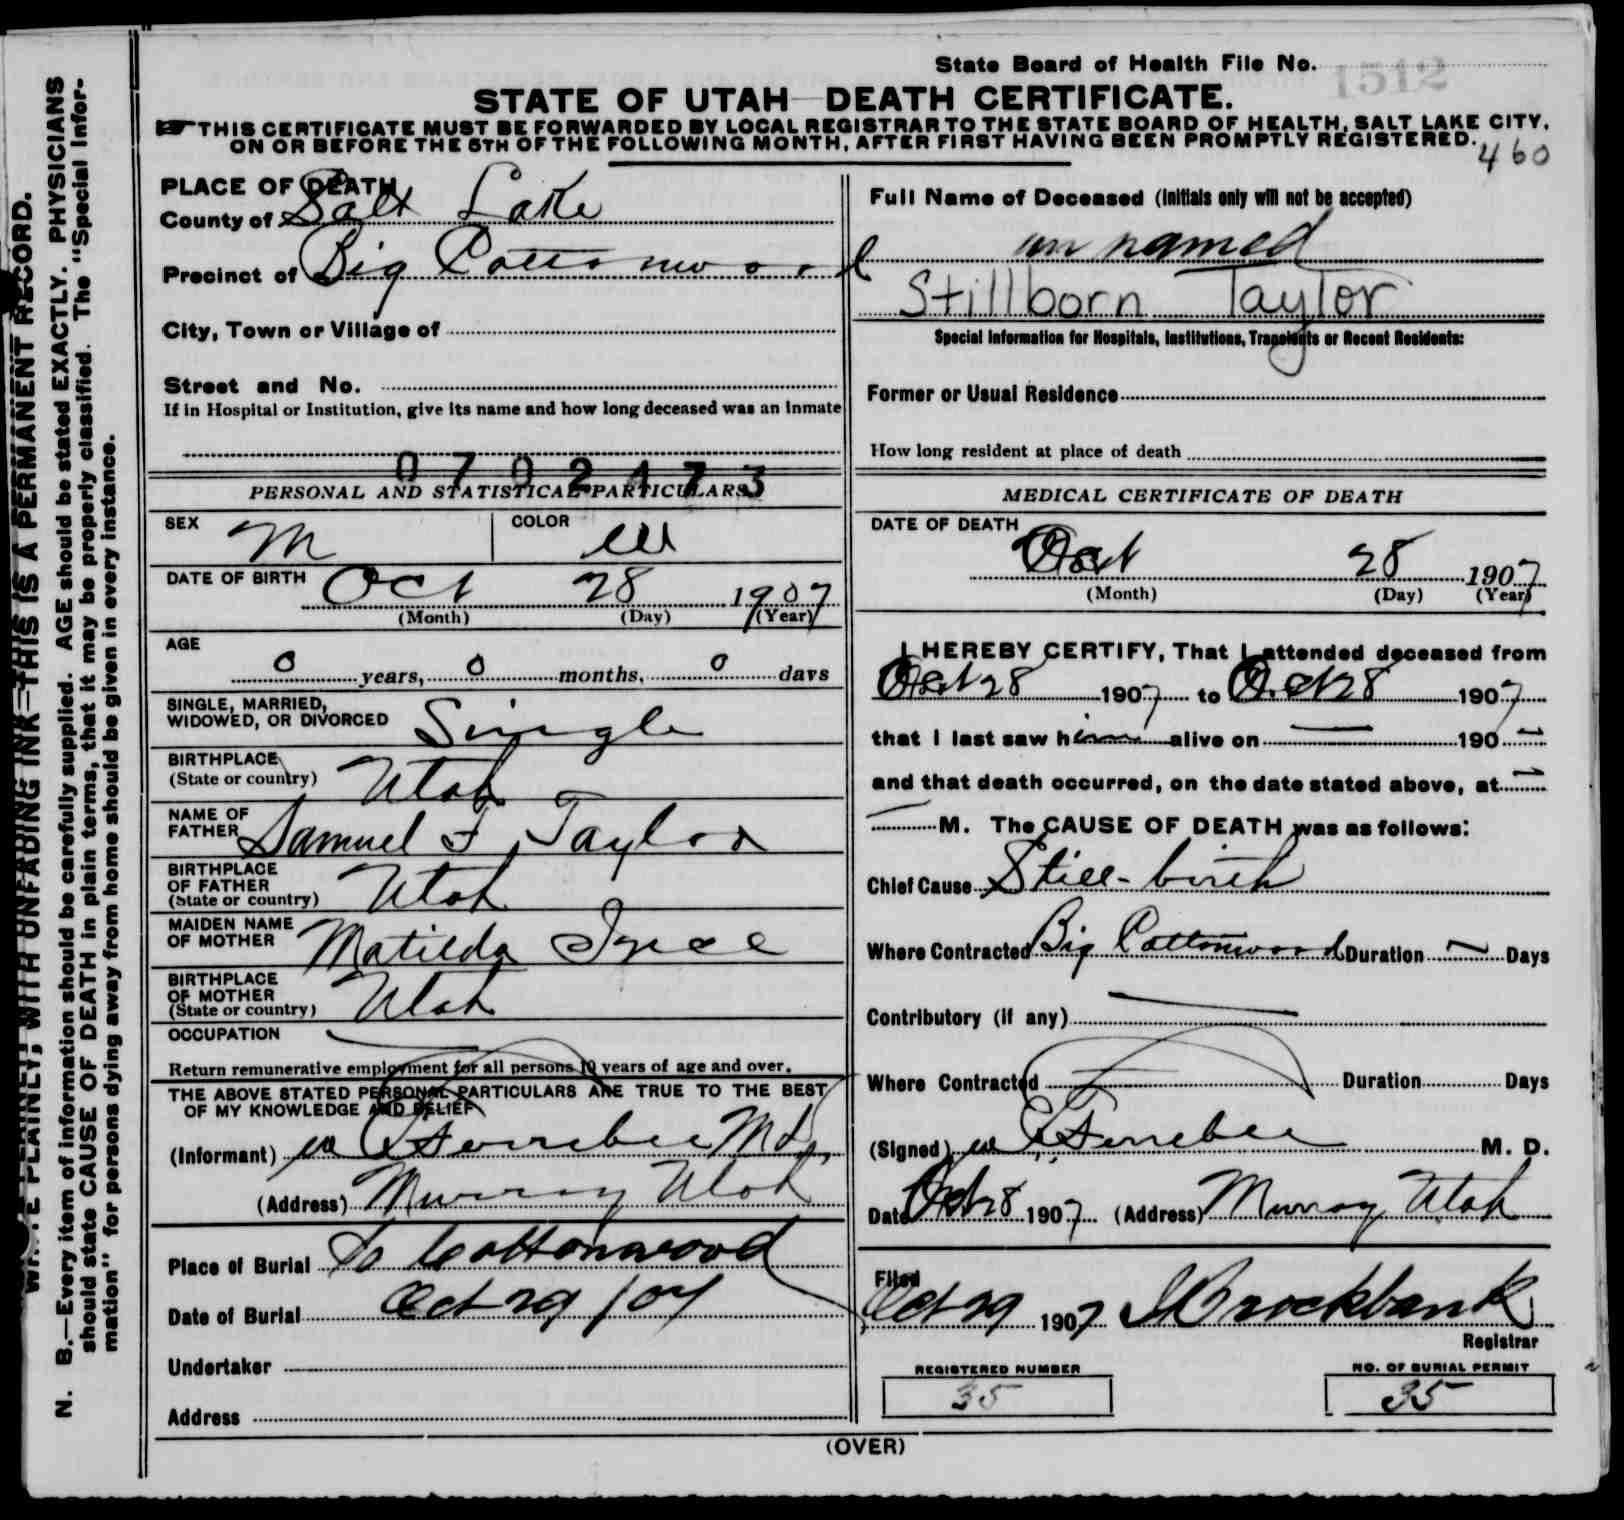 State Board of Health File No. 1512
STATE OF UTAH—DEATH CERTIFICATE.
THIS CERTIFICATE MUST BE FORWARDED BY LOCAL REGISTRAR TO THE STATE BOARD OF HEALTH, SALT LAKE CITY,
ON OR BEFORE THE 5TH OF THE FOLLOWING MONTH, AFTER FIRST HAVING BEEN PROMPTLY REGISTERED.
460
PLACE OF DEATH
County of Salt Lake
Precinct of Big Cottonwood
City, Town or Village of
Street and No.
If in Hospital or Institution, give its name and how long deceased was an inmate
0702473
PERSONAL AND STATISTICAL PARTICULARS
SEX M COLOR W
DATE OF BIRTH Oct 28 1907
(Month) (Day) (Year)
AGE
0 years, 0 months, 0 days
SINGLE, MARRIED,
WIDOWED, OR DIVORCED Single
BIRTHPLACE
(State or country) Utah
NAME OF
FATHER Samuel F Taylor
BIRTHPLACE
OF FATHER
(State or country) Utah
MAIDEN NAME
OF MOTHER Matilda
BIRTHPLACE
OF MOTHER
(State or country) Utah
OCCUPATION
Return remunerative employment for all persons 10 years of age and over.
THE ABOVE STATED PERSONAL PARTICULARS ARE TRUE TO THE BEST
OF MY KNOWLEDGE AND BELIEF
(Informant) W C Ferrebee M D,
(Address) Murray Utah
Place of Burial So Cottonwood
Date of Burial Oct 29/07
Undertaker
Address
Full Name of Deceased (Initials only will not be accepted)
un named
Stillborn Taylor
Special Information for Hospitals, Institutions, Transients or Recent Residents:
Former or Usual Residence
How long resident at place of death
MEDICAL CERTIFICATE OF DEATH
DATE OF DEATH
Oct 28 1907
(Month) (Day) (Year)
I HEREBY CERTIFY, That I attended deceased from
Oct 28 1907 to Oct 28 1907
that I last saw him alive on — 190 —
and that death occurred, on the date stated above, at —
— M. The CAUSE OF DEATH was as follows:
Chief Cause Still-birth
Where Contracted Big Cottonwood Duration — Days
Contributory (if any) —
Where Contracted — Duration Days
(Signed) W C Ferrebee M. D.
Date Oct 28 1907 (Address) Murray Utah
Filed
Oct 29 1907 Brockbank
Registrar
REGISTERED NUMBER
35
NO. OF BURIAL PERMIT
35
(OVER)
WRITE PLAINLY, WITH UNFADING INK—THIS IS A PERMANENT RECORD.
N. B.—Every item of information should be carefully supplied. AGE should be stated EXACTLY. PHYSICIANS
should state CAUSE OF DEATH in plain terms, that it may be properly classified. The "Special Infor-
mation" for persons dying away from home should be given in every instance.